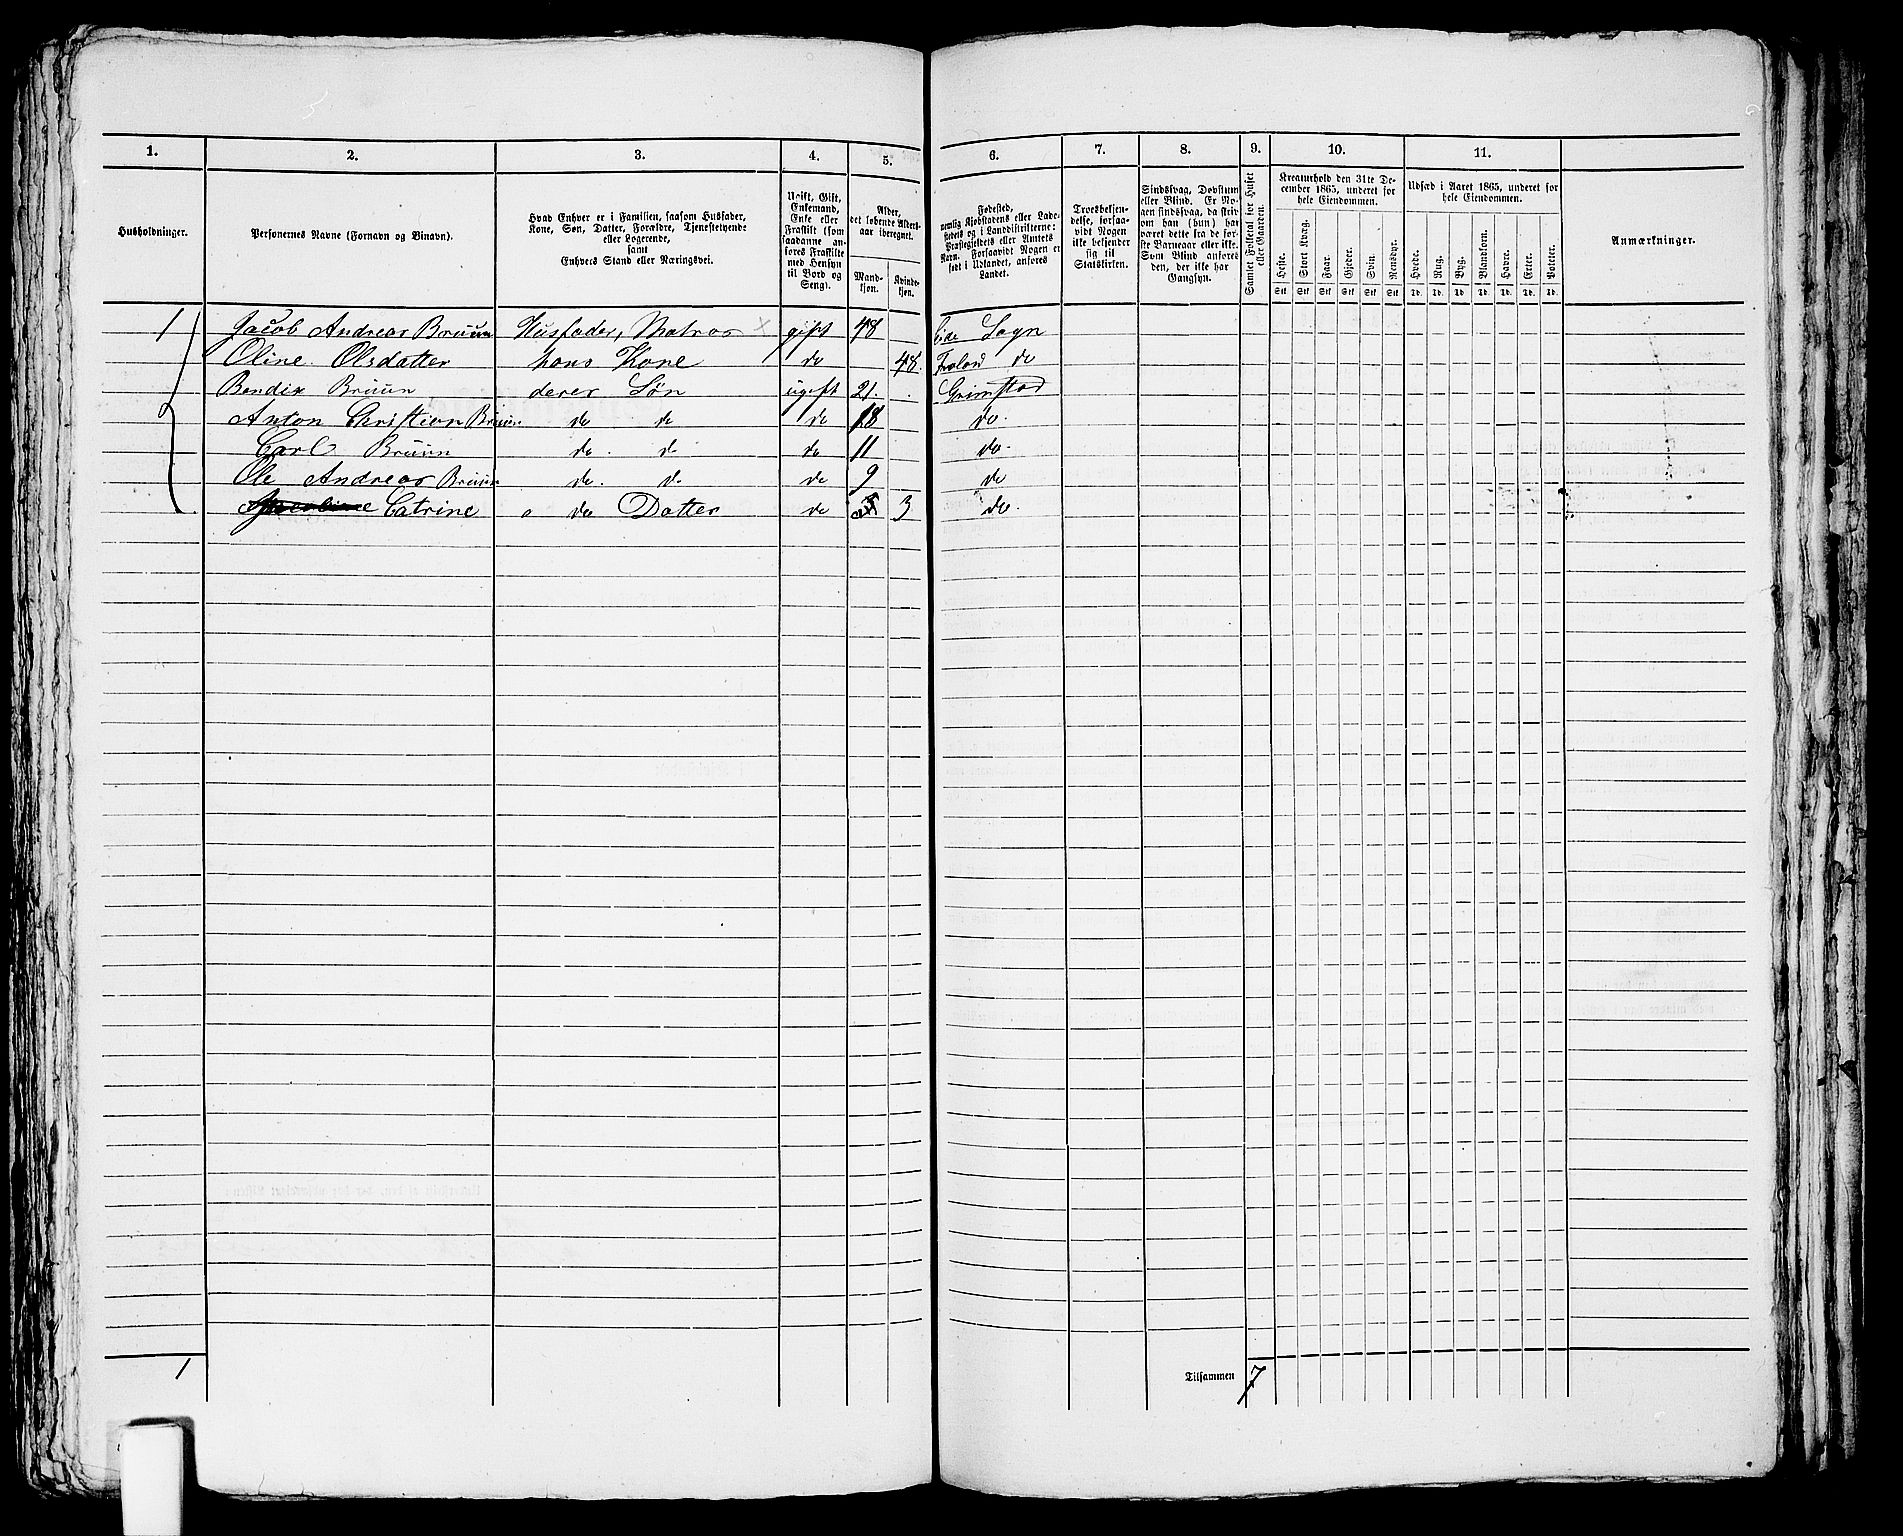 1. 2. 3. 4. 5. 6. 7. 8. 9. 10. 11.
Husholdninger.
Personernes Navne (Fornavn og Binavn).
Hvad Enhver er i Familien, saasom Husfader,
Kone, Søn, Datter, Forældre, Tjenestetyende
eller Logerende,
samt
Enhvers Stand eller Næringsvei.
Ugift, Gift,
Enkemand,
Enke eller
Fraskilt (som
saadanne an-
føres Fraskilte
med Hensyn
til Bord og
Seng).
Alder,
det løbende Alders-
aar iberegnet.
Mand-
kjøn.
Kvinde-
kjøn.
Fødested,
nemlig Kjøbstadens eller Lade-
stedets og i Landdistrikterne:
Præstegjeldets eller Amtets
Navn. Forsaavidt Nogen er
født i Udlandet, anføres
Landet.
Troesbekjen-
delse, forsaa-
vidt Nogen
ikke bekjender
sig til
Statskirken.
Sindssvag, Døvstum
eller Blind. Er No-
gen sindssvag, da skriv
om han (hun) har
været dette fra de før-
ste Barneaar eller ikke.
Som Blind anføres
den, der ikke har
Gangsyn.
Samlet Folketal for Huset
eller Gaarden.
Kreaturhold den 31te De-
cember 1865, underet for
hele Eiendommen.
Heste. Stort Kvæg. Faar. Gjeder. Svin. Rensdyr.
Stk Stk Stk Stk Stk Stk
Udsæd i Aaret 1865, underet for
hele Eiendommen.
Hvede. Rug. Byg. Blandkorn. Havre. Erter. Poteter.
Td. Td. Td Td. Td. Td. Td.
Anmærkninger.
1 Jacob Andreas Bruun Husfader, Matros x gift 48 Eide Sogn
Oline Olsdatter hans Kone do 48 Froland do
Bendix Bruun deres Søn ugift 21. Grimstad
Anton Christian Bruun do do do 18 do.
Carl Bruun do. do do 11 do.
Ole Andreas Bruun do. do do 9 do
Catrine do Datter do 3 do.
1 Tilsammen 7